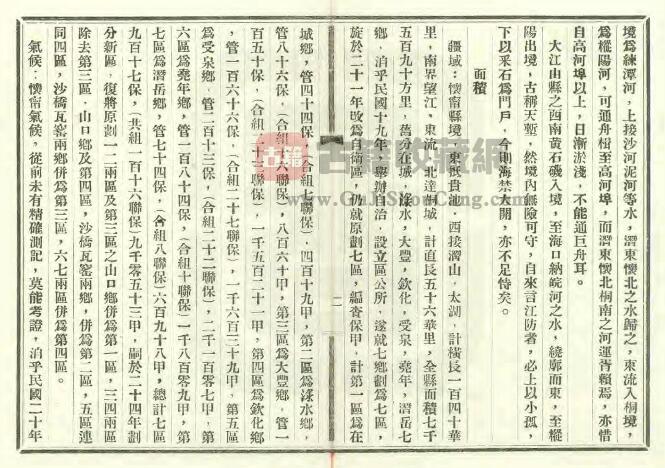 境爲練潭河，上接沙河泥河等水，潛東懷北之水歸之，東流入桐境，
爲樅陽河，可通舟楫至高河埠，而潛東懷北桐南之河運胥賴焉，亦惜
自高河埠以上，日漸淤淺，不能通巨舟耳。
大江由縣之西南黃石磯入境，至海口納皖河之水，繞廓而東，至樅
陽出境，古稱天塹，然境內無險可守，自來言江防者，必上以小孤，
下以采石爲門戶，今則海禁大開，亦不足恃矣。
面積
疆域：懷甯縣境，東抵貴池，西接潛山，太湖，計橫長一百四十華
里，南界望江，東流，北達桐城，計直長五十六華里，全縣面積七千
五百九十方里，舊分在城，淥水，大豐，欽化，受泉，堯年，潛岳七
鄉，洎乎民國十九年，舉辦自治，設立區公所，遂就七鄉劃爲七區，
旋於二十一年改爲自衛區，仍就原劃七區，編查保甲，計第一區爲在
城鄉，管四十四保，（合組七聯保）四百十九甲，第二區爲淥水鄉，
管八十六保，（合組 六聯保），八百六十甲，第三區爲大豐鄉，管一
百五十保，（合組 聯保），一千五百二十一甲，第四區爲欽化鄉
，管一百六十六保，（合組二十七聯保），一千六百三十九甲，第五區
爲受泉鄉，管二百十三保，（合組二十二聯保），二千一百零七甲，第
六區爲堯年鄉，管一百八十四保，（合組十聯保）一千八百零九甲，第
七區爲潛岳鄉，管七十四保，（合組八聯保）六百九十八甲，總計七區
九百十七保，（共組一百十六聯保）九千零五十三甲，嗣於二十四年劃
分新區，復將原劃一二兩區及第三區之山口鄉併爲第一區，三四兩區
除去第三區，山口鄉及第四區，沙橋瓦窰兩鄉，併爲第二區，五區連
同四區，沙橋瓦窰兩鄉併爲第三區，六七兩區併爲第四區。
氣候：懷甯氣候，從前未有精確測記，莫能考證，洎乎民國二十年
二
古籍
古籍收藏網
www.GuJiShouCang.com